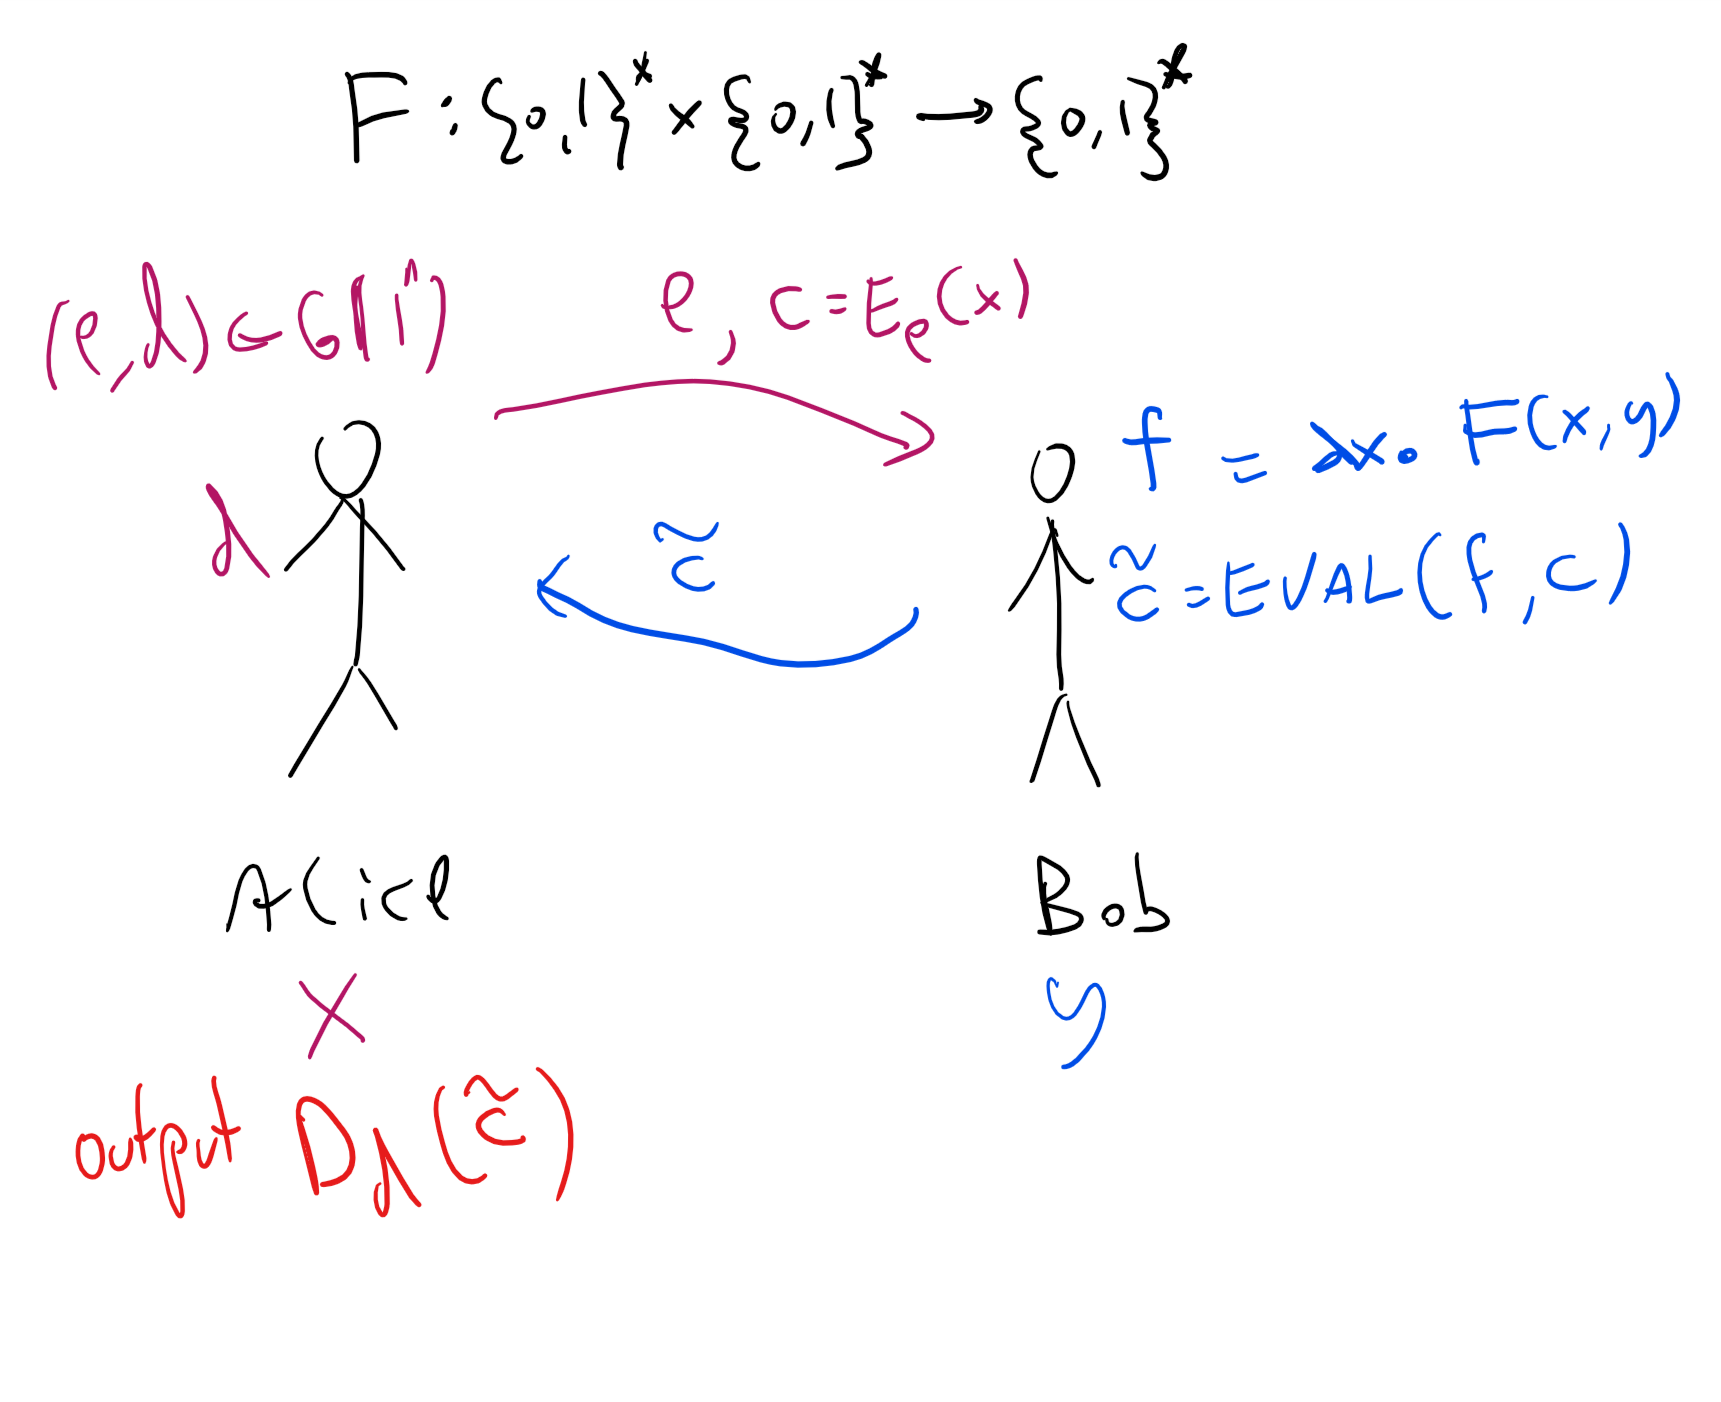 F : {0,1}* × {0,1}* → {0,1}*
(e,d) ← G(1ⁿ)
e, c = Eₑ(x)
f = λx. F(x,y)
d
c̃
c̃ = EVAL(f, c)
Alice
Bob
x
y
output D_d(c̃)